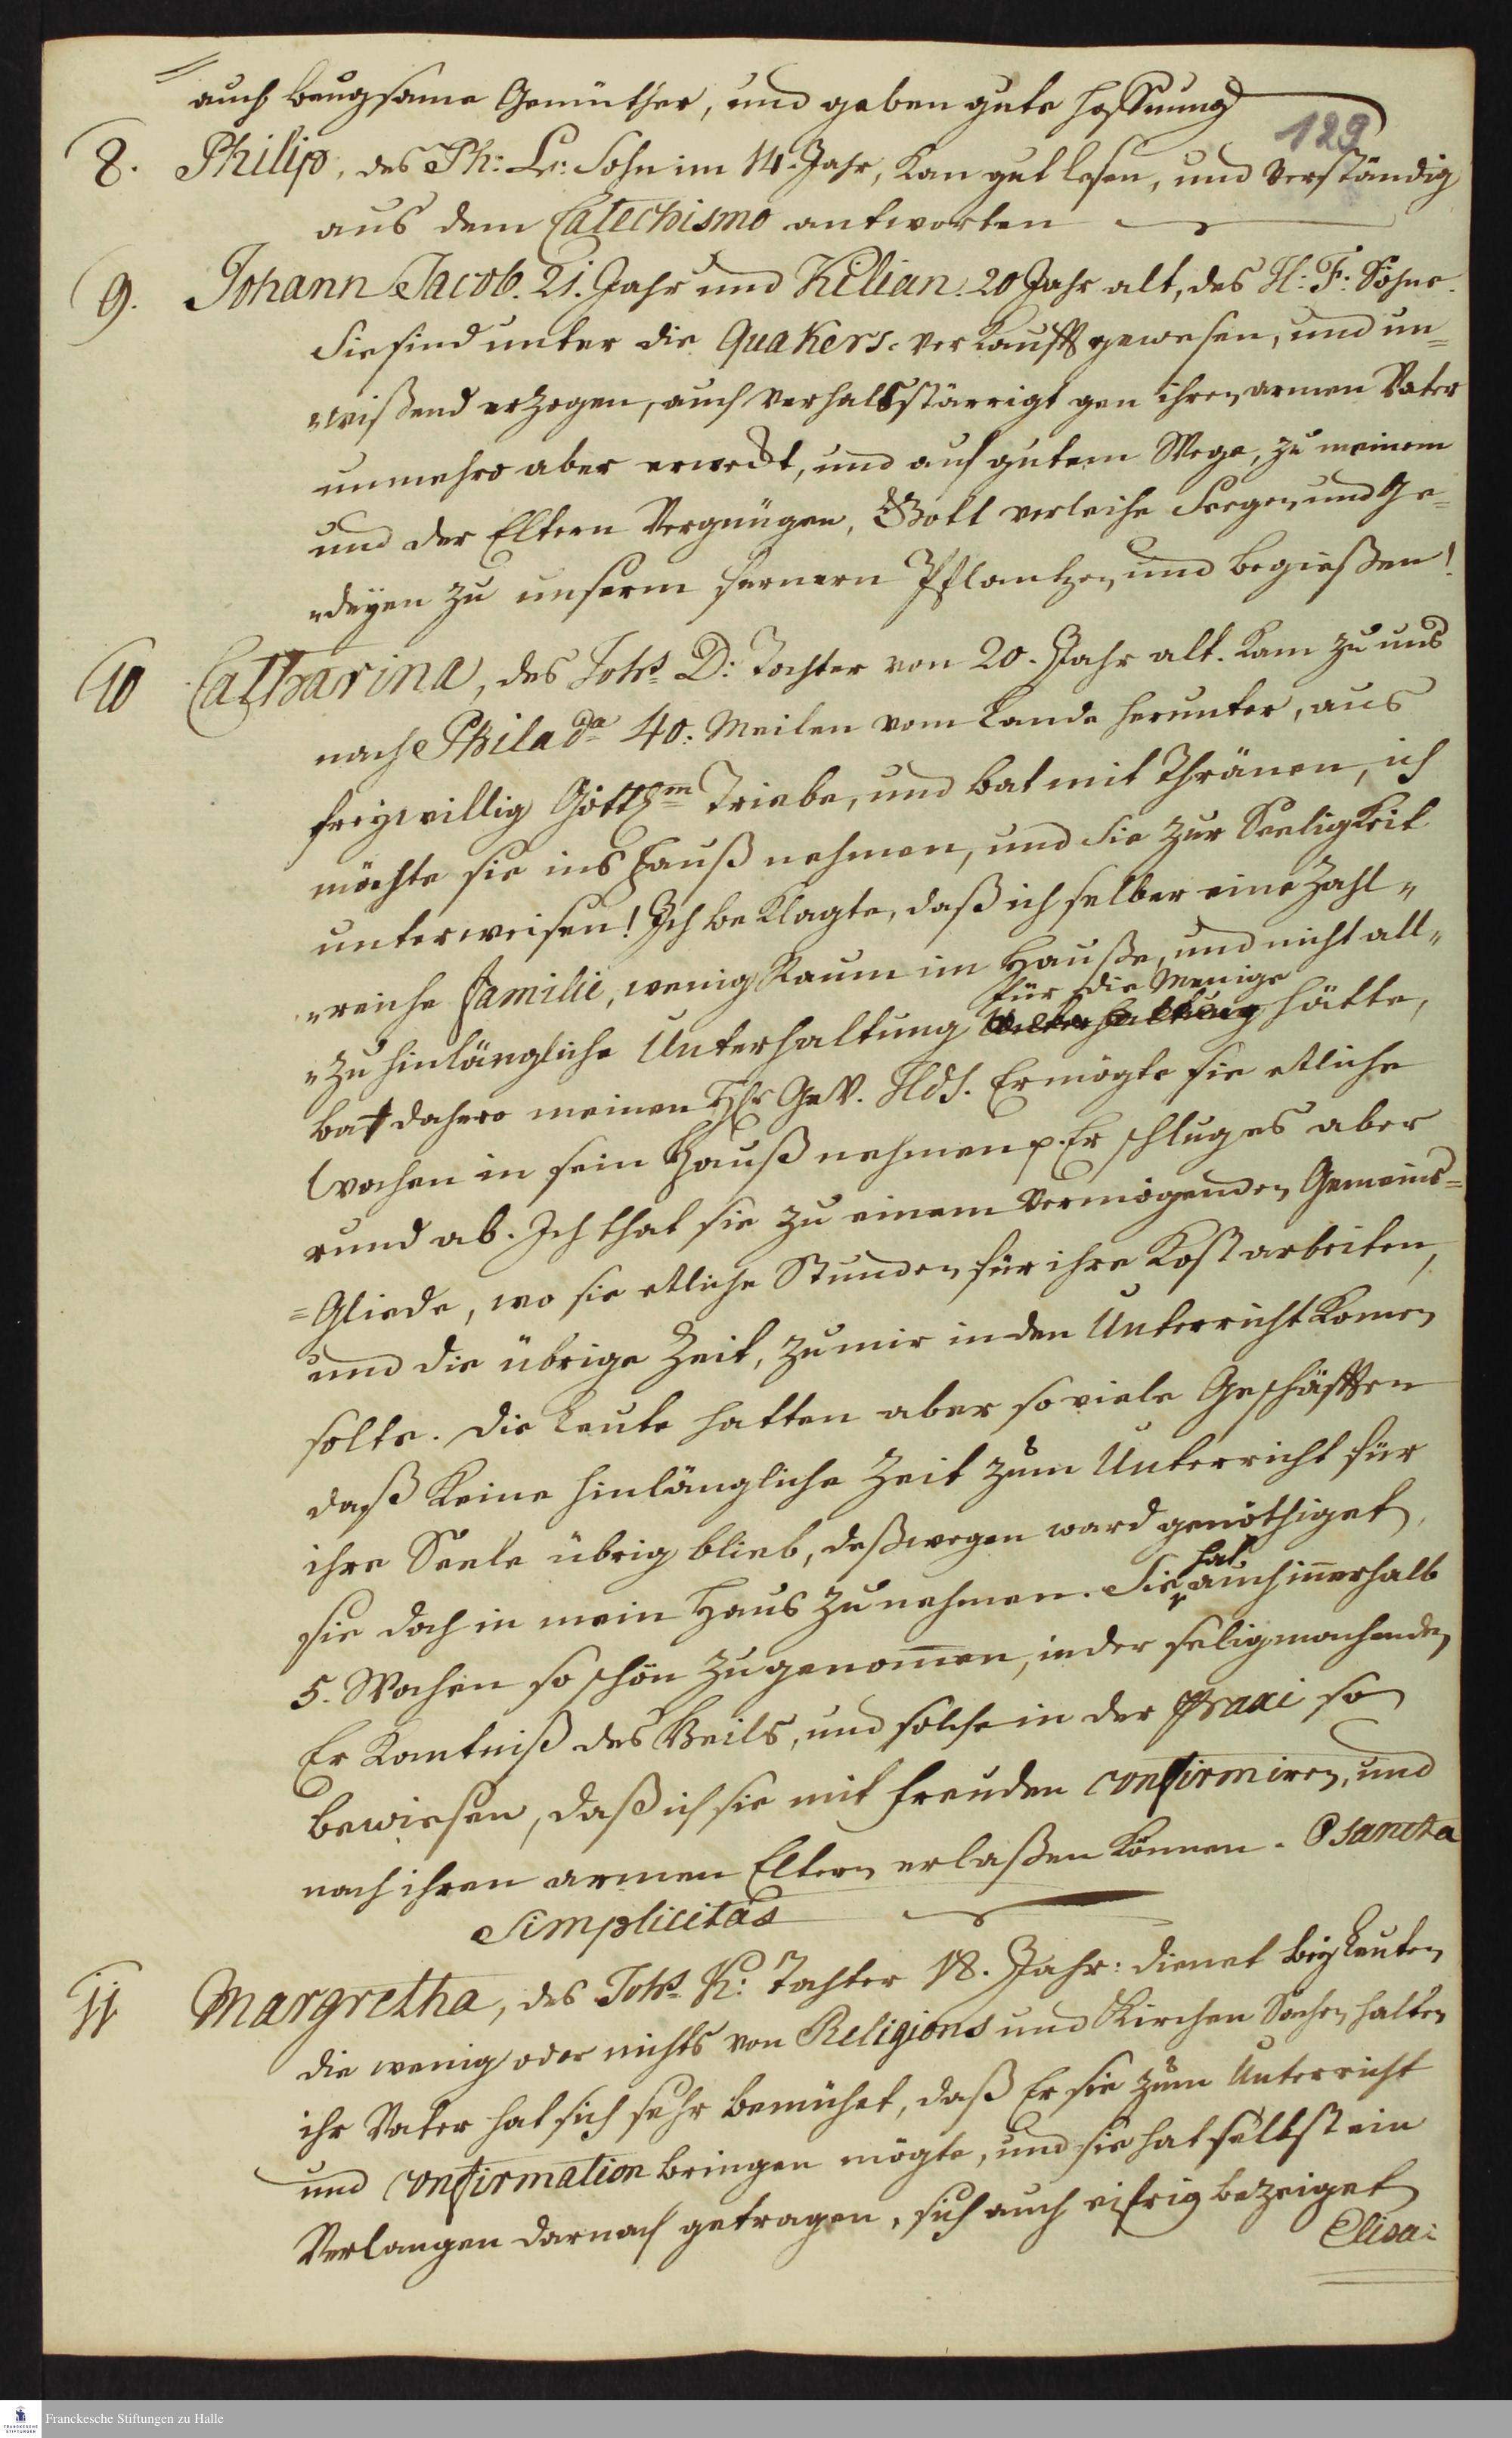 auch beugsame Gemüther, und geben gute Hoffnung
129
8. Philip, des Ph: Lr: Sohn im 14. Jahr, kan gut lesen, und verständig
aus dem Catechismo antworten
9. Johann Jacob. 21. Jahr und Kilian. 20 Jahr alt, des H: F: Söhne.
Sie sind unter die Quakers verkaufft gewesen, und un=
„wißend erzogen, auch verhalsstärrigt gen ihren armen Vater
nunmehro aber erweckt, und auf gutem Wege, zu meinem
und der Eltern Vergnügen, Gott verleihe Seegen und Ge=
„deyen zu unserm fernern Pflantzen und begießen!
10 Catharina, des Johs D: Tochter von 20. Jahr alt. kam zu uns
nach Philada 40: Meilen vom Lande herunter, aus
freywillig Göttlm Triebe, und bat mit Thränen, ich
möchte sie ins Hauß nehmen, und sie zur Seeligkeit
unterweisen! Ich beklagte, daß ich selber eine Zahl„
„reiche Familie, wenig Raum im Hauße, und nicht all„
für die Menige
„zu hinlängliche Unterhaltung hätte,
bat dahero meinen Er mögte sie etliche
Wochen in sein Hauß nehmen p. Er schlug es aber
rund ab. Ich that sie zu einem vermögenden Gemeins=
=Gliede, wo sie etliche Stunden für ihre Kost arbeiten,
und die übrige Zeit, zu mir in den Unterricht komen
solte. Die Leute hatten aber so viele Geschäfften
daß keine hinlängliche Zeit zum Unterricht für
ihre Seele übrig blieb, deßwegen ward genöthiget,
sie doch in mein Haus zu nehmen. Sie hat auch innerhalb
5. Wochen so schön zugenommen, in der seligmachenden
Erkantniß des Heils, und solche in der Praxi so
bewiesen, daß ich sie mit Freuden confirmiren, und
nach ihren armen Eltern erlaßen können. O sancta
Simplicitas
11 Margretha, des Johs K: Tochter 18. Jahr: dienet bey Leuten
die wenig oder nichts von Religions und Kirchen Sachen halten
ihr Vater hat sich sehr bemühet, daß Er sie zum Unterricht
und Confirmation bringen mögte, und sie hat selbst ein
Verlangen darnach getragen, sich auch eifrig bezeiget
Elisa:
Franckesche Stiftungen zu Halle